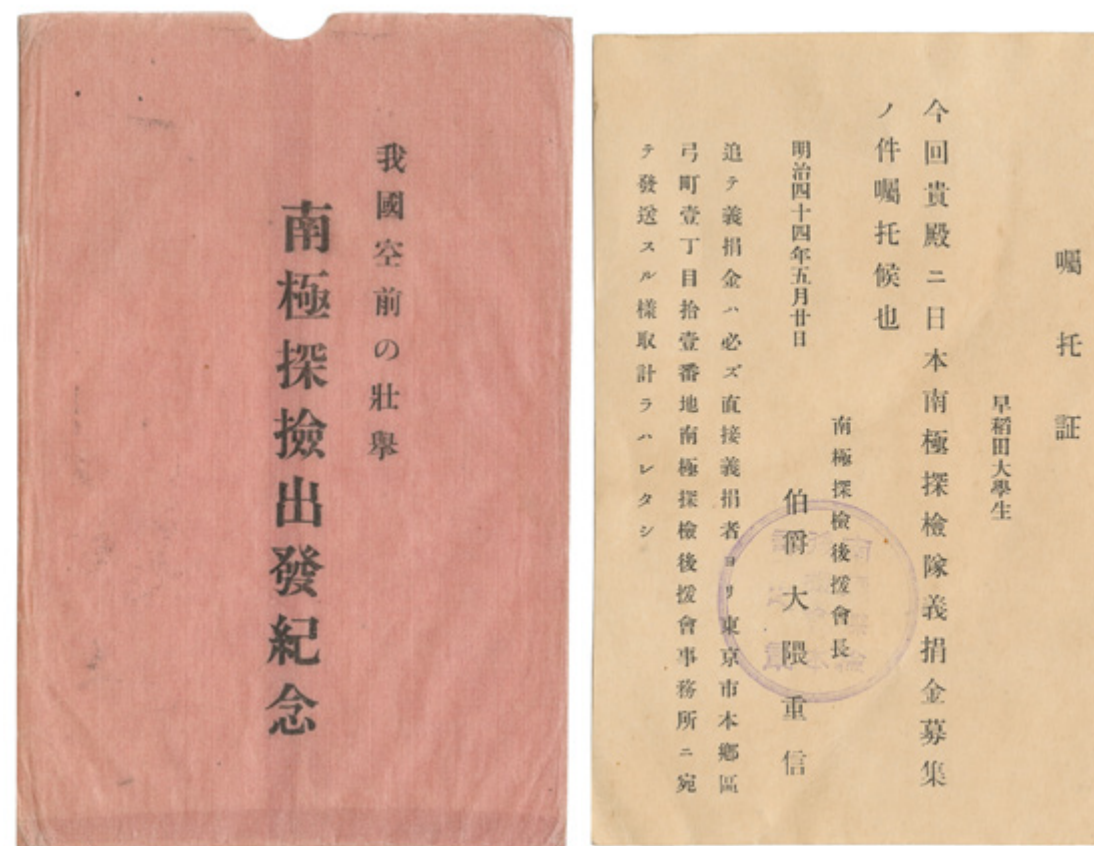 我國空前の壯擧
南極探撿出發紀念
囑托証
早稻田大學生
今回貴殿ニ日本南極探檢隊義捐金募集
ノ件囑托候也
南極探檢後援會長
伯爵大隈重信
明治四十四年五月廿日
追テ義捐金ハ必ズ直接義捐者ヨリ東京市本郷區
弓町壹丁目拾壹番地南極探檢後援會事務所ニ宛
テ發送スル樣取計ラハレタシ